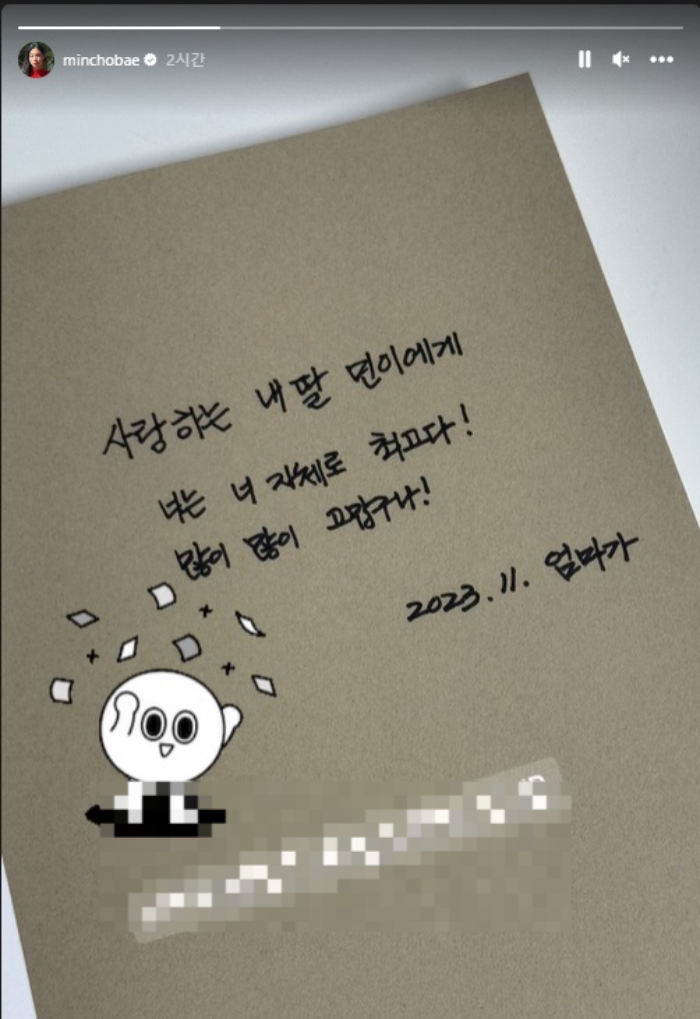 minchobae 2시간
사랑하는 내 딸 민이에게
너는 너 자체로 최고다!
많이 많이 고맙구나!
2023.11. 엄마가